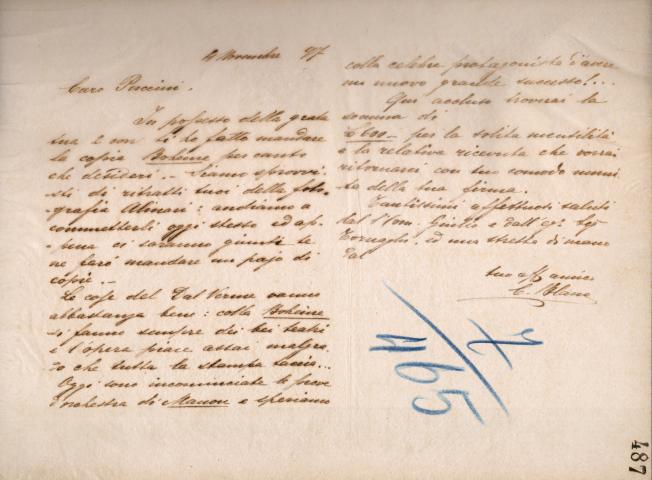 4 Novembre 97
Caro Puccini.
In possesso della grata
tua 2 corr. ti ho fatto mandare
la copia Bohème per canto
che desideri. – Siamo sprovvi-
sti di ritratti tuoi della foto-
grafia Alinari: andiamo a
commetterli oggi stesso ed ap-
pena ci saranno giunti te
ne farò mandare un pajo di
copie. –
Le cose del Dal Verme vanno
abbastanza bene: colla Bohème
si fanno sempre dei bei teatri
e l'opera piace assai malgra-
do che tutta la stampa taccia...
Oggi sono incominciate le prove
d'orchestra di Manon e speriamo
colla celebre protagonista d'avere
un nuovo grande successo!...
Qui accluso troverai la
somma di
£600 – per la solita mensilità
e la relativa ricevuta che vorrai
ritornarci con tuo comodo muni-
ta della tua firma.
Tantissimi affettuosi saluti
dal Comm. Giulio e dall'
Tornaghi, ed una stretta di mano
dal
tuo aff. amico
C. Blanc
7/465
487